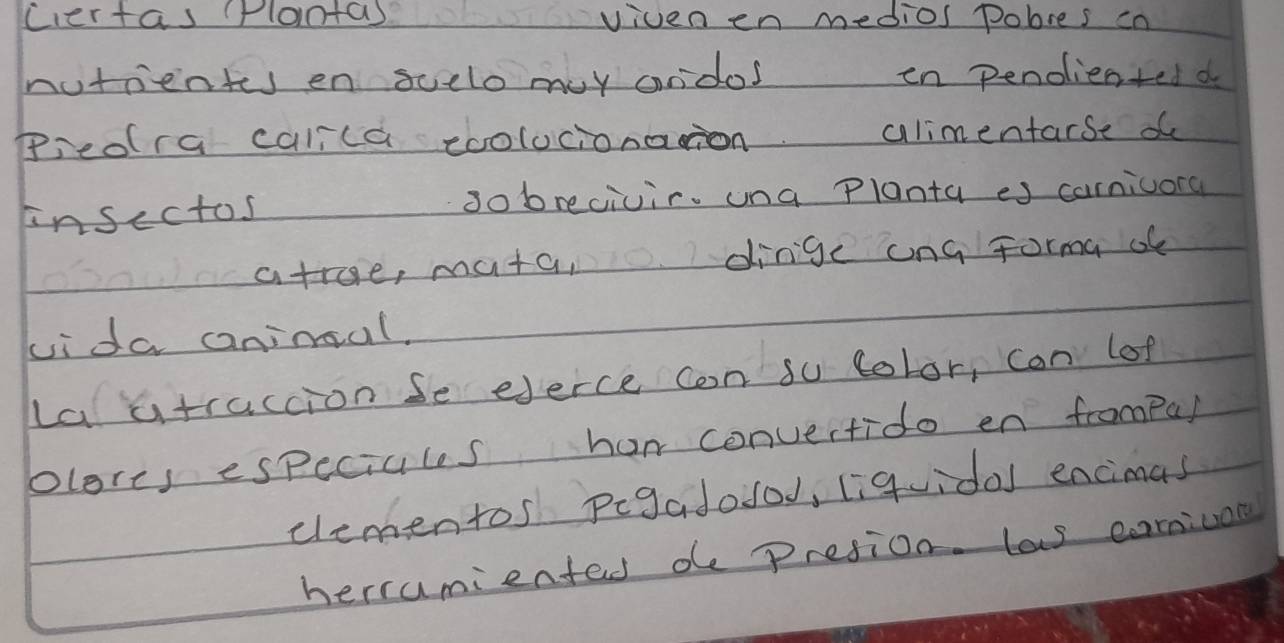 Ciertas Plantas viven en medios Pobres en
nutrientes en suelo muy aridos en Pendientes de
Piedra calica evolucionarion alimentarse de
insectos sobrecivir. una Planta es carnivora
atrae, mata, dirige una forma de
vida animal.
La atraccion se ejerce con su color, con los
olores especiales han convertido en trampas
elementos Pegadosos, liquidos encimas
herramientas de Presion. las carnivora